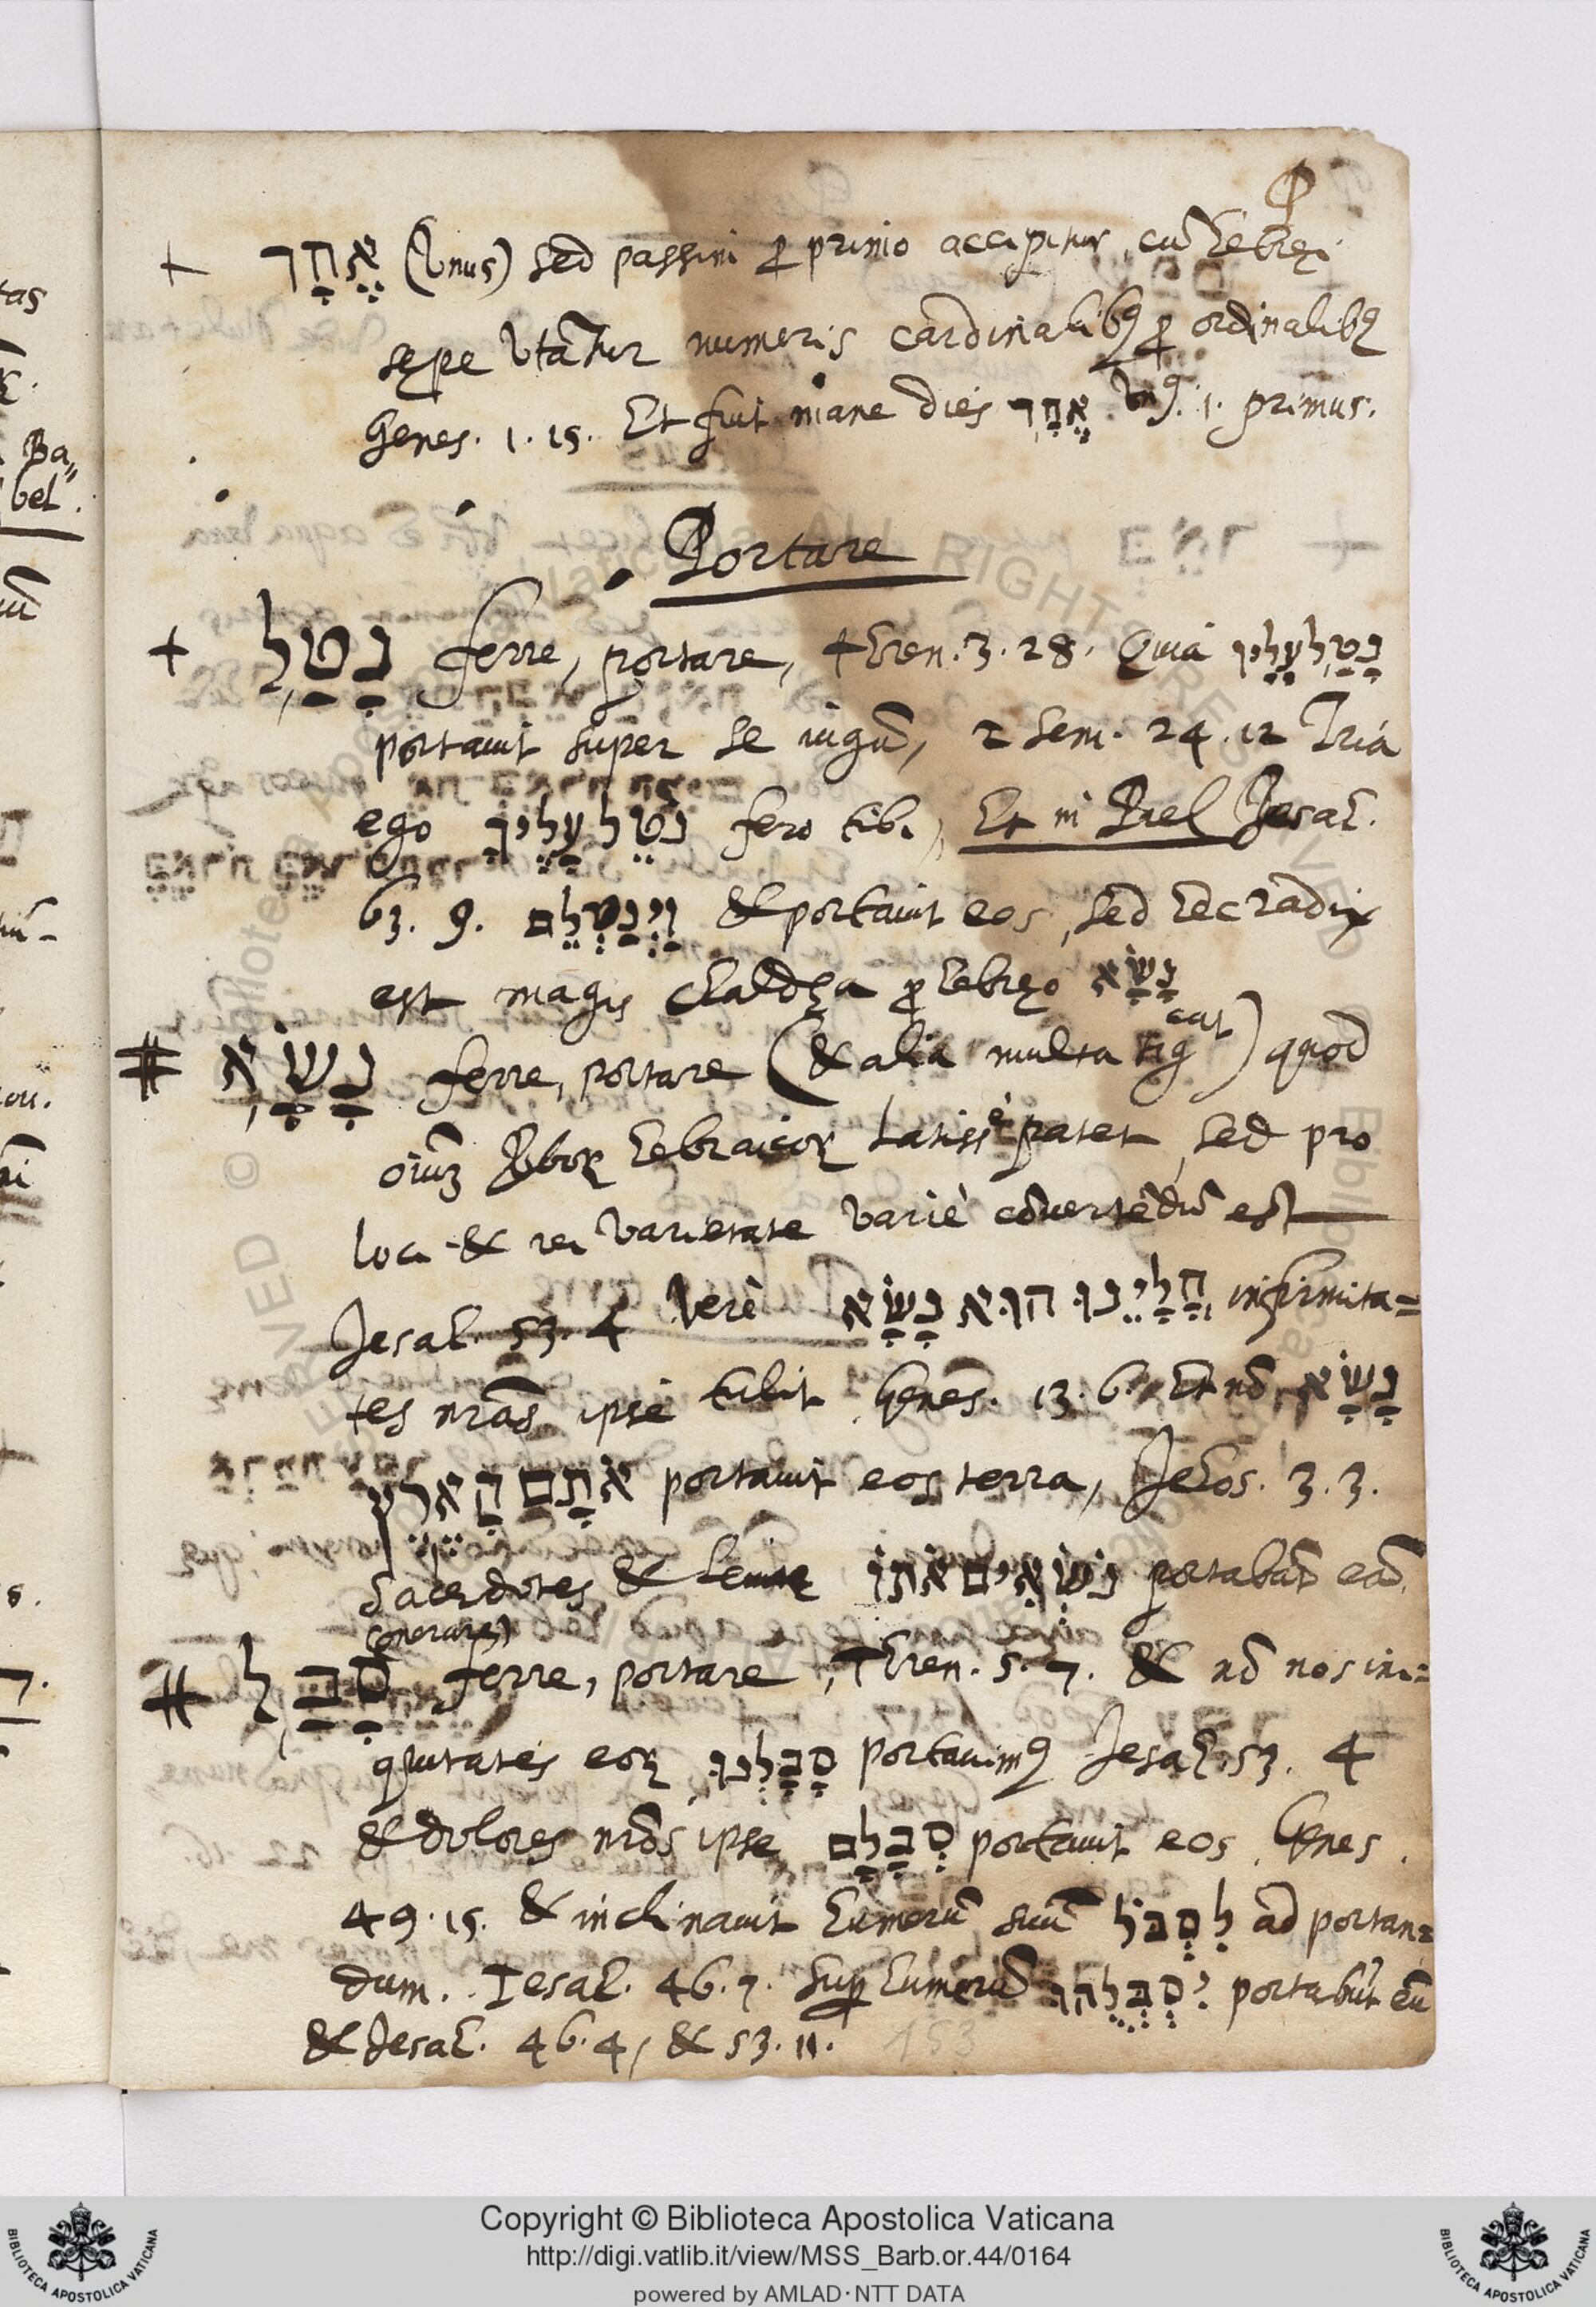 P
+ אֶחָד (Vnus) sed passim ꝓ primo accipitur, cũ hebręi
sępe vtãtur numeris cardinalibꝰ ꝓ ordinalibꝰ
Genes. 1. 15. Et fuit mane dies אֶחָד Vnꝰ. i. primus.
Portare
+ נָטַל ferre, portare, Thren. 3. 28. Quia נָטַל עָלָיו
portauit super se iugũ, 2 Sem. 24. 12 Tria
ego נֹטֵל עָלֶיךָ fero tibi, Et in Piel Jesah.
63. 9. וַיְנַטְּלֵם & portauit eos, sed hec radix
est magis chaldęa ꝓ hebręo נָשָׂא
# נָשָׂא ferre, portare (& alia multa significat) quod
oium̃ Vborꝝ hebraicorꝝ latissè patet, sed pro
loci & rei varietate variè cõuertẽdũ est
Jesah. 53. 4 Verè חֳלָיֵנוּ הוּא נָשָׂא infirmita=
tes nr̃as ipse tulit Genes. 13. 6. Et nõ נָשָׂא
אֹתָם הָאָרֶץ portauit eos terra, Jehos. 3. 3.
Sacerdotes & Leuitę נֹשְׂאִים אֹתוֹ portabãt eã,
(onerare)
# סָבַל ferre, portare, Thren. 5. 7. & nõ nos ini=
quitates eorꝝ סָבָלְנוּ portauimꝰ Jesah. 53. 4
& dolores nr̃os ipse סְבָלָם portauit eos. Genes.
49. 15. & inclinauit humerũ suũ לִסְבֹּל ad portan=
dum. Iesah. 46. 7. Sup humerũ יִסְבְּלֻהוּ portabũt eũ
& Jesah. 46. 4, & 53. 11.
153
Copyright © Biblioteca Apostolica Vaticana
http://digi.vatlib.it/view/MSS_Barb.or.44/0164
powered by AMLAD·NTT DATA